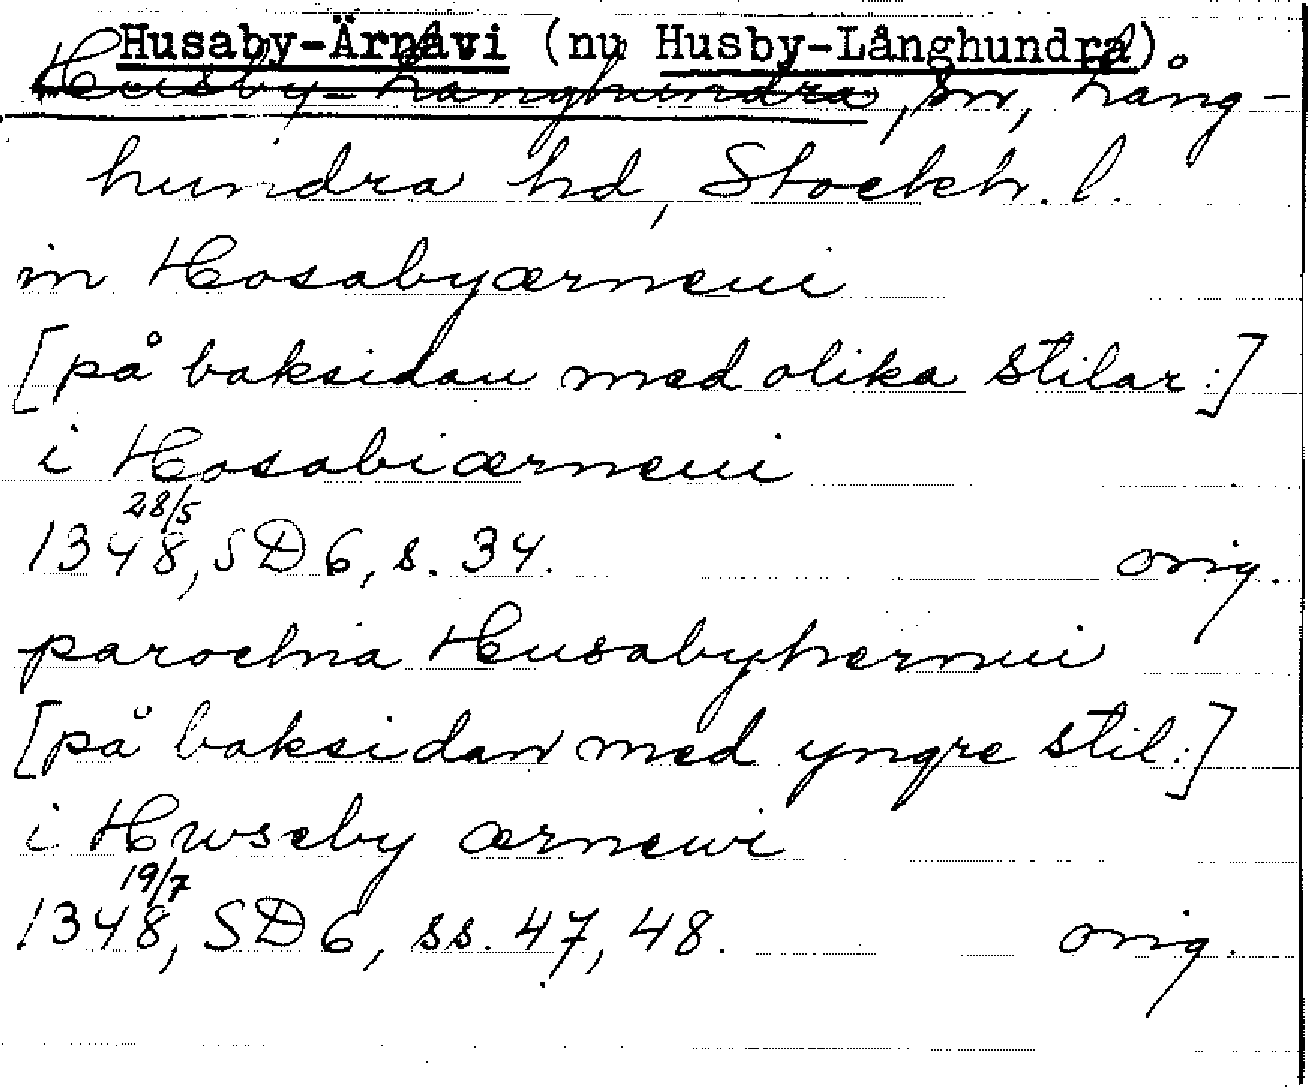 Husaby-Ärnavi (nu Husby-Långhundra).
Husby-Långhundra, sn, Lång-
hundra hd, Stockh. l.
in Hosabyærneui
[på baksidan med olika stilar:]
i Hosabiærneui
28/5
1348, SD 6, s. 34. orig.
parochia Husabyhernui
[på baksidan med yngre stil:]
i Hwseby ærnewi
19/7
1348, SD 6, ss. 47, 48. orig.